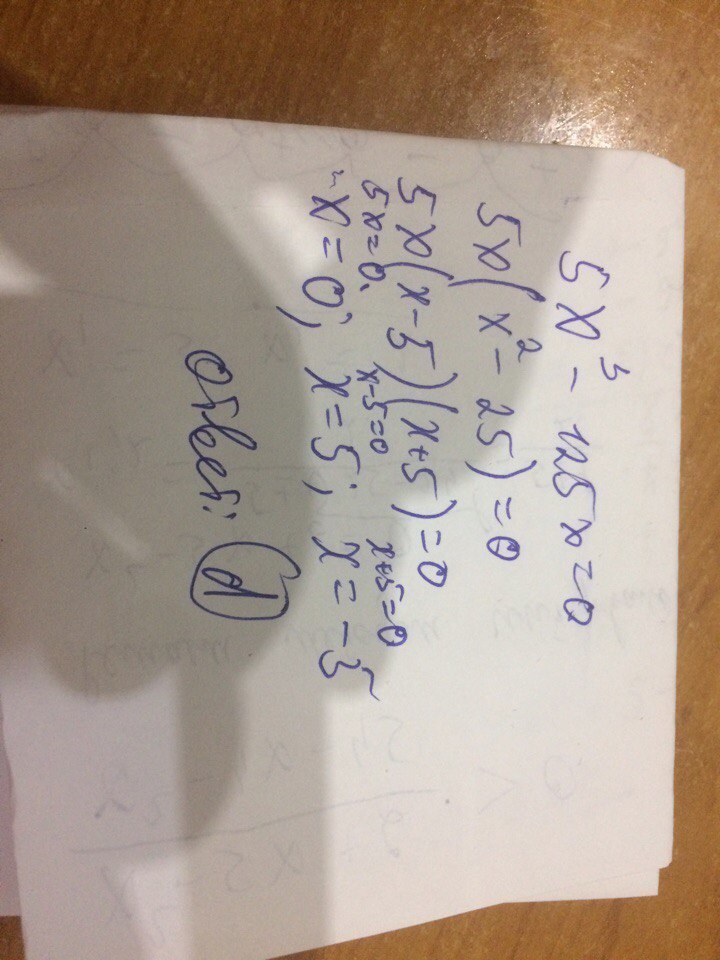 5x³ - 125x = 0
5x(x² - 25) = 0
5x(x-5)(x+5) = 0
5x=0, x-5=0 x+5=0
x = 0; x = 5; x = -5
ответ: d